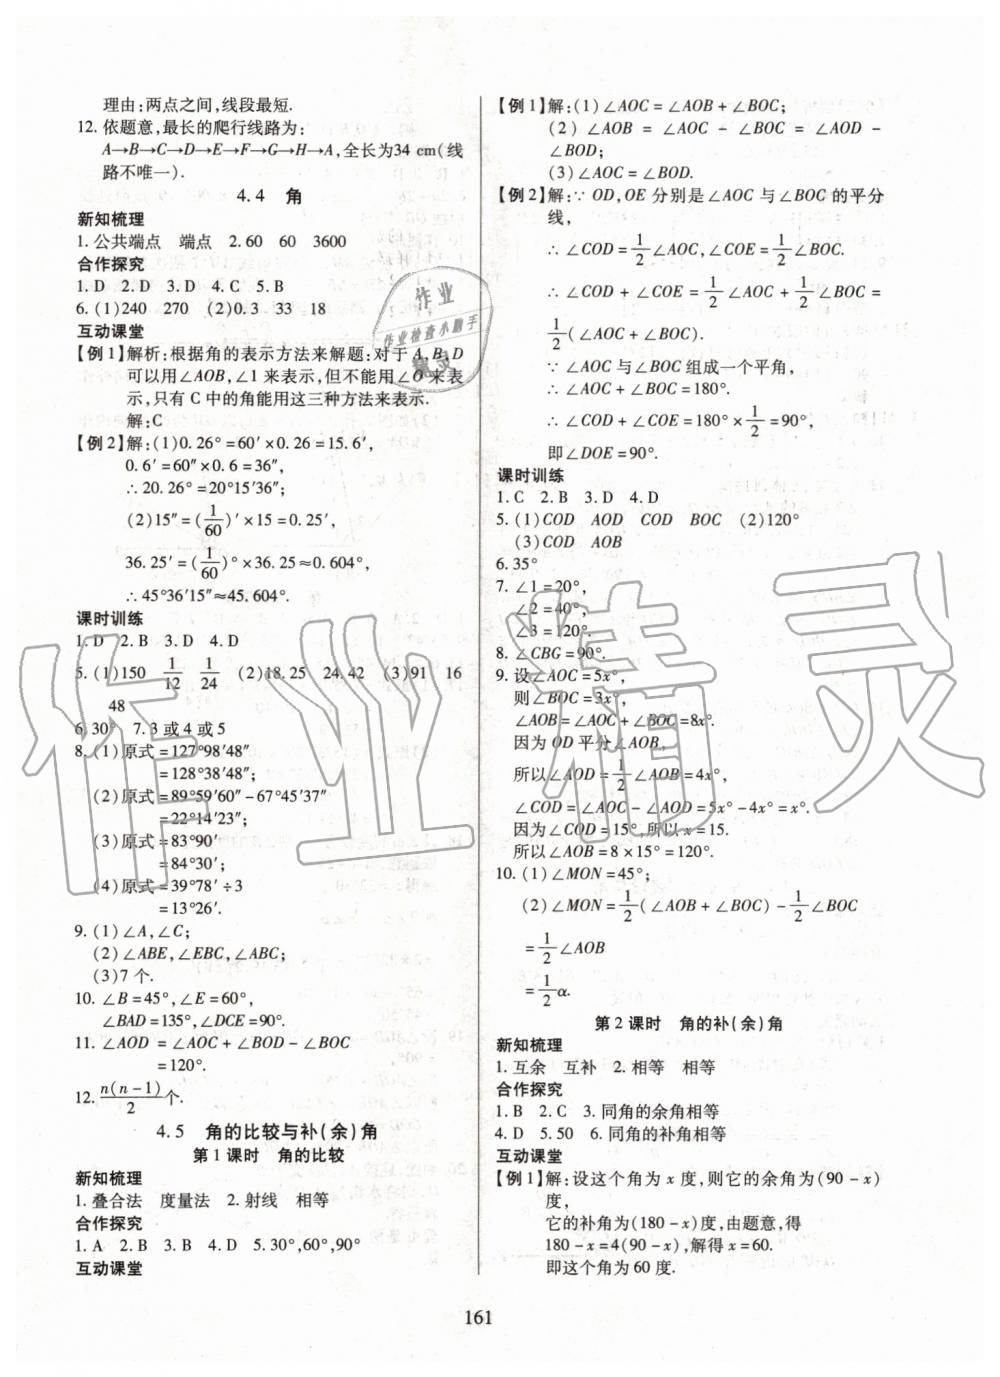 理由:两点之间,线段最短.
12. 依题意,最长的爬行线路为:
A→B→C→D→E→F→G→H→A,全长为34 cm(线
路不唯一).
4.4 角
新知梳理
1. 公共端点 端点 2. 60 60 3600
合作探究
1. D 2. D 3. D 4. C 5. B
6. (1)240 270 (2)0.3 33 18
互动课堂
【例1】解析:根据角的表示方法来解题:对于 A,B,D
可以用∠AOB,∠1 来表示,但不能用∠O 来表
示,只有 C 中的角能用这三种方法来表示.
解:C
【例2】解:(1)0.26°=60′×0.26=15.6′,
0.6′=60″×0.6=36″,
∴20.26°=20°15′36″;
(2)15″=(1/60)′×15=0.25′,
36.25′=(1/60)°×36.25≈0.604°,
∴45°36′15″≈45.604°.
课时训练
1. D 2. B 3. D 4. D
5. (1)150 1/12 1/24 (2)18.25 24.42 (3)91 16
48
6. 30° 7. 3 或 4 或 5
8. (1)原式=127°98′48″
=128°38′48″;
(2)原式=89°59′60″-67°45′37″
=22°14′23″;
(3)原式=83°90′
=84°30′;
(4)原式=39°78′÷3
=13°26′.
9. (1)∠A,∠C;
(2)∠ABE,∠EBC,∠ABC;
(3)7 个.
10. ∠B=45°,∠E=60°,
∠BAD=135°,∠DCE=90°.
11. ∠AOD=∠AOC+∠BOD-∠BOC
=120°.
12. n(n-1)/2 个.
4.5 角的比较与补(余)角
第1课时 角的比较
新知梳理
1. 叠合法 度量法 2. 射线 相等
合作探究
1. A 2. B 3. B 4. D 5. 30°,60°,90°
互动课堂
【例1】解:(1)∠AOC=∠AOB+∠BOC;
(2)∠AOB=∠AOC-∠BOC=∠AOD-
∠BOD;
(3)∠AOC=∠BOD.
【例2】解:∵OD,OE 分别是∠AOC 与∠BOC 的平分
线,
∴∠COD=1/2∠AOC,∠COE=1/2∠BOC.
∴∠COD+∠COE=1/2∠AOC+1/2∠BOC=
1/2(∠AOC+∠BOC).
∵∠AOC 与∠BOC 组成一个平角,
∴∠AOC+∠BOC=180°.
∴∠COD+∠COE=180°×1/2=90°,
即∠DOE=90°.
课时训练
1. C 2. B 3. D 4. D
5. (1)COD AOD COD BOC (2)120°
(3)COD AOB
6. 35°
7. ∠1=20°,
∠2=40°,
∠3=120°.
8. ∠CBG=90°.
9. 设∠AOC=5x°,
则∠BOC=3x°,
∠AOB=∠AOC+∠BOC=8x°.
因为 OD 平分∠AOB,
所以∠AOD=1/2∠AOB=4x°,
∠COD=∠AOC-∠AOD=5x°-4x°=x°.
因为∠COD=15°,所以 x=15.
所以∠AOB=8×15°=120°.
10. (1)∠MON=45°;
(2)∠MON=1/2(∠AOB+∠BOC)-1/2∠BOC
=1/2∠AOB
=1/2α.
第2课时 角的补(余)角
新知梳理
1. 互余 互补 2. 相等 相等
合作探究
1. B 2. C 3. 同角的余角相等
4. D 5. 50 6. 同角的补角相等
互动课堂
【例1】解:设这个角为 x 度,则它的余角为(90-x)
度,
它的补角为(180-x)度,由题意,得
180-x=4(90-x),解得 x=60.
即这个角为 60 度.
161
作业
作业检查小助手
精灵
作业精灵